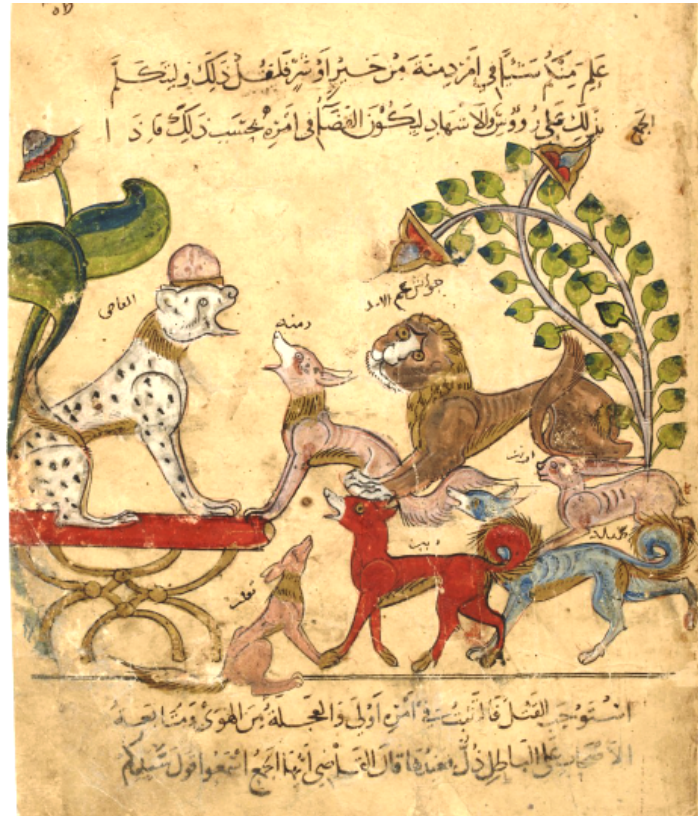 علم منكم شيئا في امر دمنة من خير او شر فليقل ذلك وليتكلم
بذلك على رؤوس الاشهاد ليكون القضا في امره بحسب ذلك فاذا
الجمع
القاضى
دمنه
جواس عم الاسد
ارنب
ذيب
ثعلب
استوجب القتل فالتثبت في امره اولى والعجلة من الهوى ومتابعة
الاصحاب على الباطل ذل فعندها قال القاضي ايها الجمع اسمعوا قول سيدكم